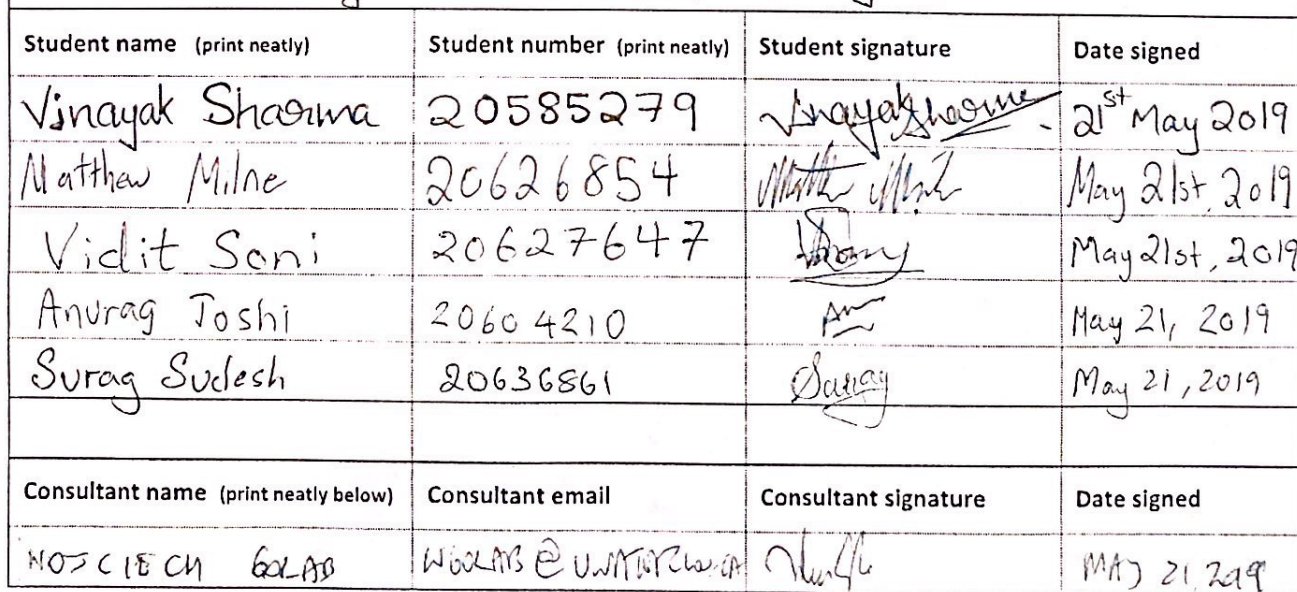 Student name (print neatly) Student number (print neatly) Student signature Date signed
Vinayak Sharma 20585279 Vinayak Sharma 21st May 2019
Matthew Milne 20626854 May 21st, 2019
Vidit Soni 20627647 May 21st, 2019
Anurag Joshi 20604210 May 21, 2019
Surag Sudesh 20636861 Surag May 21, 2019
Consultant name (print neatly below) Consultant email Consultant signature Date signed
WOJCIECH GOLAB WGOLAB@UWATERLOO.CA MAY 21, 2019